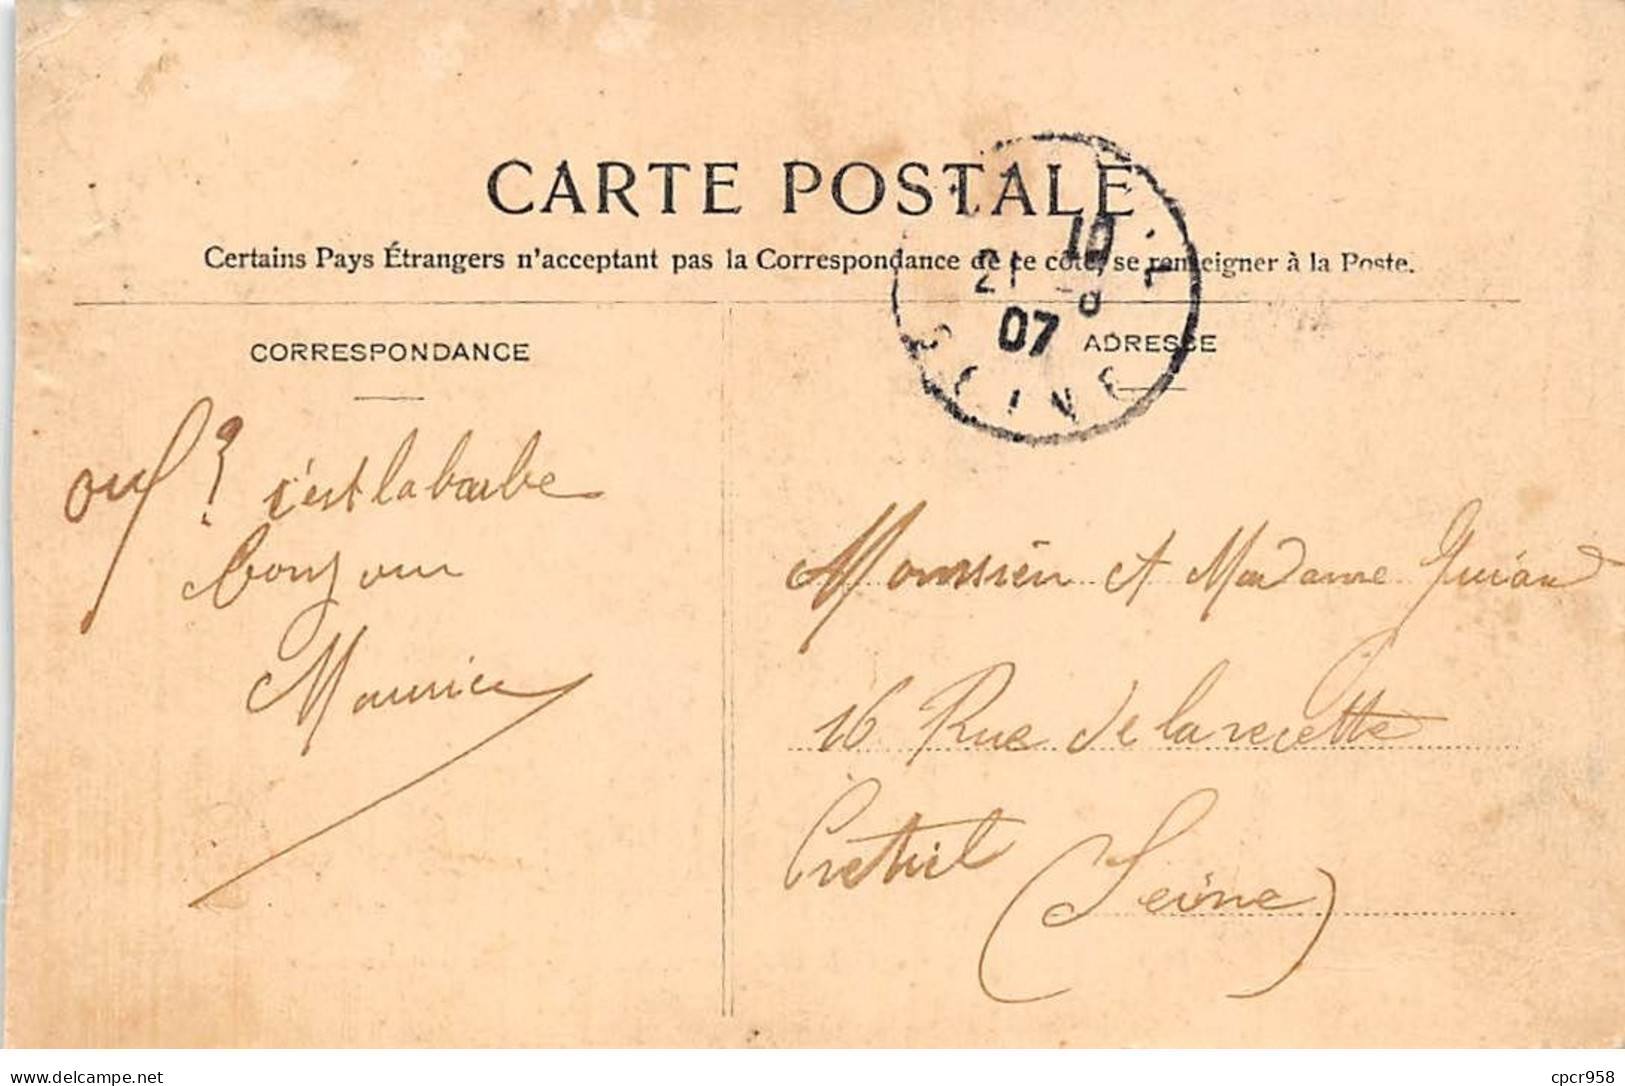 CARTE POSTALE
Certains Pays Étrangers n'acceptant pas la Correspondance de ce côté, se renseigner à la Poste.
10
21 - 8
07
SEINE
CORRESPONDANCE
ADRESSE
ouf! c'est la barbe
bonjour
Maurice
Monsieur et Madame
16 Rue de la recette
Creteil
(Seine)
delcampe.net
cpcr958